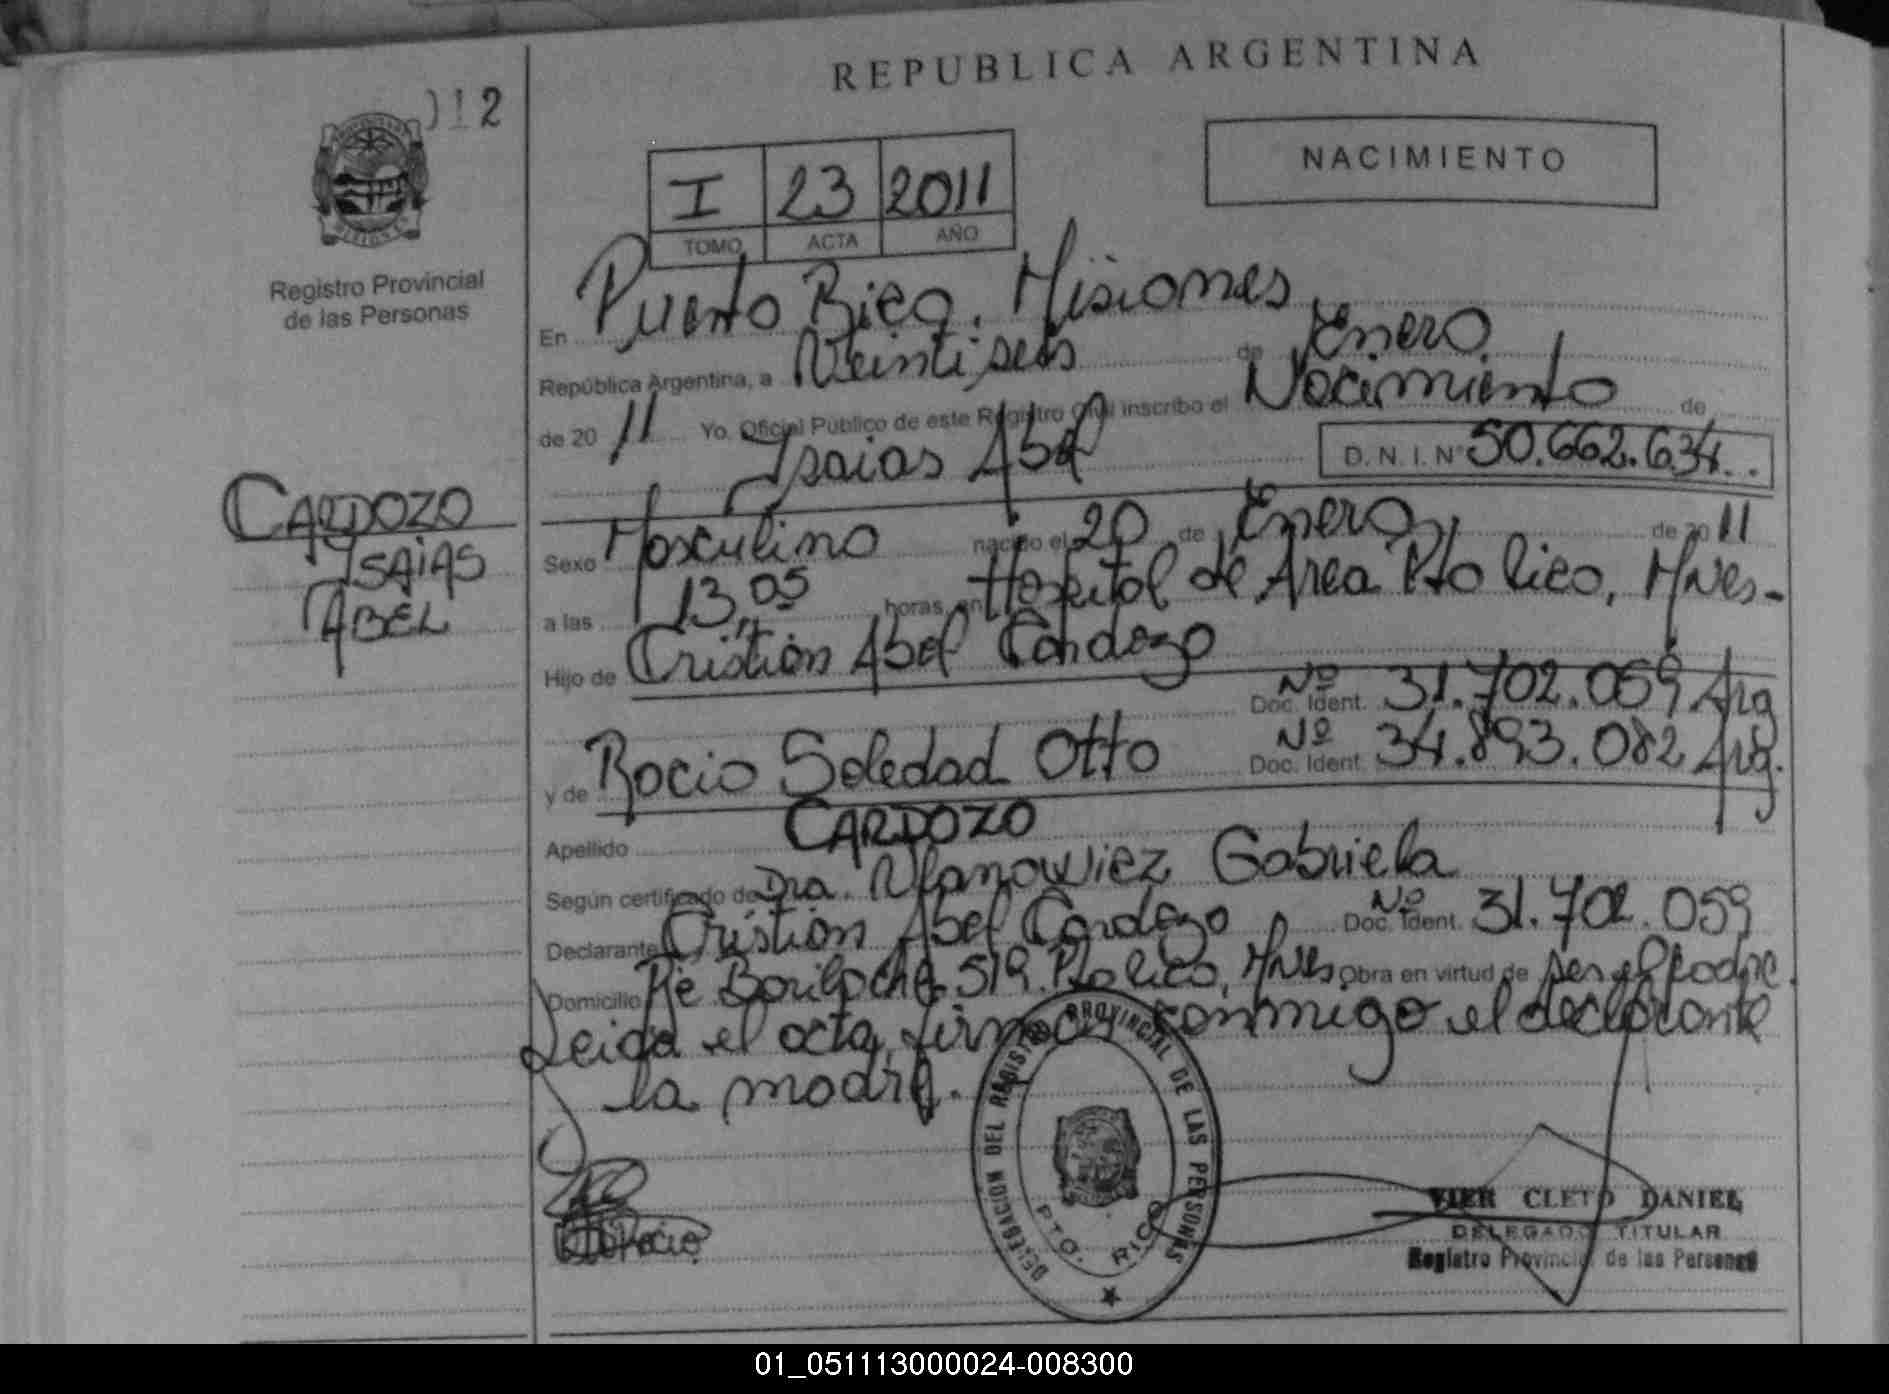 REPUBLICA ARGENTINA
012
NACIMIENTO
I 23 2011
TOMO ACTA AÑO
Registro Provincial
de las Personas
En Puerto Rico, Misiones
República Argentina, a Veintiseis de Enero
de 20 11 Yo, Oficial Público de este Registro Civil inscribo el Nacimiento de
Isaias Abel D.N.I. N° 50.662.634
CARDOZO
ISAIAS
ABEL
Sexo Masculino nacido el 20 de Enero de 20 11
a las 13,05 horas, en Hospital de Area Pto Rico, Mnes.-
Hijo de Cristian Abel Cardozo
Nº
Doc. Ident. 31.702.059 Arg
y de Rocio Soledad Otto Nº Doc. Ident. 34.893.082 Arg.
Apellido CARDOZO
Según certificado de Dra. Gabriela
Declarante Cristian Abel Cardozo Nº Doc. Ident. 31.702.059
Domicilio Bariloche 519. Pto Rico, Mnes Obra en virtud de ser el padre.
Leida el acta, conmigo el declarante
la madre.
DELEGACION DEL REGISTRO PROVINCIAL DE LAS PERSONAS
PTO. RICO
VIER CLETO DANIEL
DELEGADO TITULAR
Registro Provincial de las Personas
01_051113000024-008300